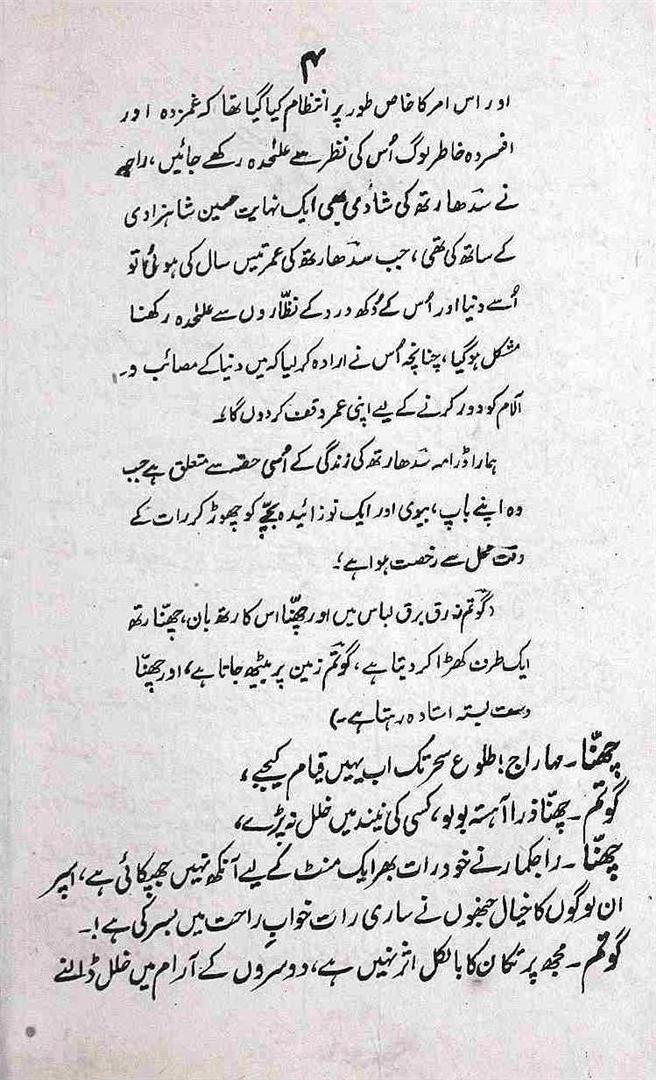 ۴
اور اس امر کا خاص طور پر انتظام کیا گیا تھا کہ غمزدہ اور
افسردہ خاطر لوگ اُس کی نظر سے علٰحدہ رکھے جائیں، راجہ
نے سدھارتھ کی شادی بھی ایک نہایت حسین شاہزادی
کے ساتھ کی تھی، جب سدھارتھ کی عمر تیس سال کی ہوئی تو
اُسے دنیا اور اُس کے دُکھ درد کے نظّاروں سے علٰحدہ رکھنا
مشکل ہوگیا، چنانچہ اُس نے ارادہ کرلیا کہ میں دنیا کے مصائب و
آلام کو دور کرنے کے لیے اپنی عمر وقف کردوں گا۔
ہمارا ڈرامہ سدھارتھ کی زندگی کے اُسی حصّہ سے متعلق ہے جب
وہ اپنے باپ، بیوی اور ایک نوزائیدہ بچّے کو چھوڑ کر رات کے
وقت محل سے رخصت ہوا ہے؛
(گوتم زرق برق لباس میں اور چھنّا اس کا رتھ بان، چھنّا رتھ
ایک طرف کھڑا کردیتا ہے، گوتم زمین پر بیٹھ جاتا ہے، اور چھنّا
دست بستہ استادہ رہتا ہے۔)
چھنّا۔ مہاراج! طلوع سحر تک اب یہیں قیام کیجیے،
گوتم۔ چھنّا ذرا آہستہ بولو، کسی کی نیند میں خلل نہ پڑے،
چھنّا۔ راجکمار نے خود رات بھر ایک منٹ کے لیے آنکھ نہیں جھپکائی ہے، اسپر
ان لوگوں کا خیال جنھوں نے ساری رات خوابِ راحت میں بسر کی ہے!۔
گوتم۔ مجھ پر تکان کا بالکل اثر نہیں ہے، دوسروں کے آرام میں خلل ڈالنے